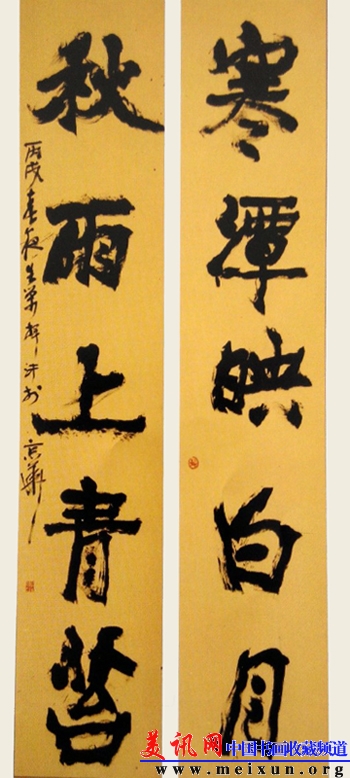 寒潭映白月
秋雨上青苔
丙戌春夜
京華
美讯网 中国书画收藏频道
www.meixun.org